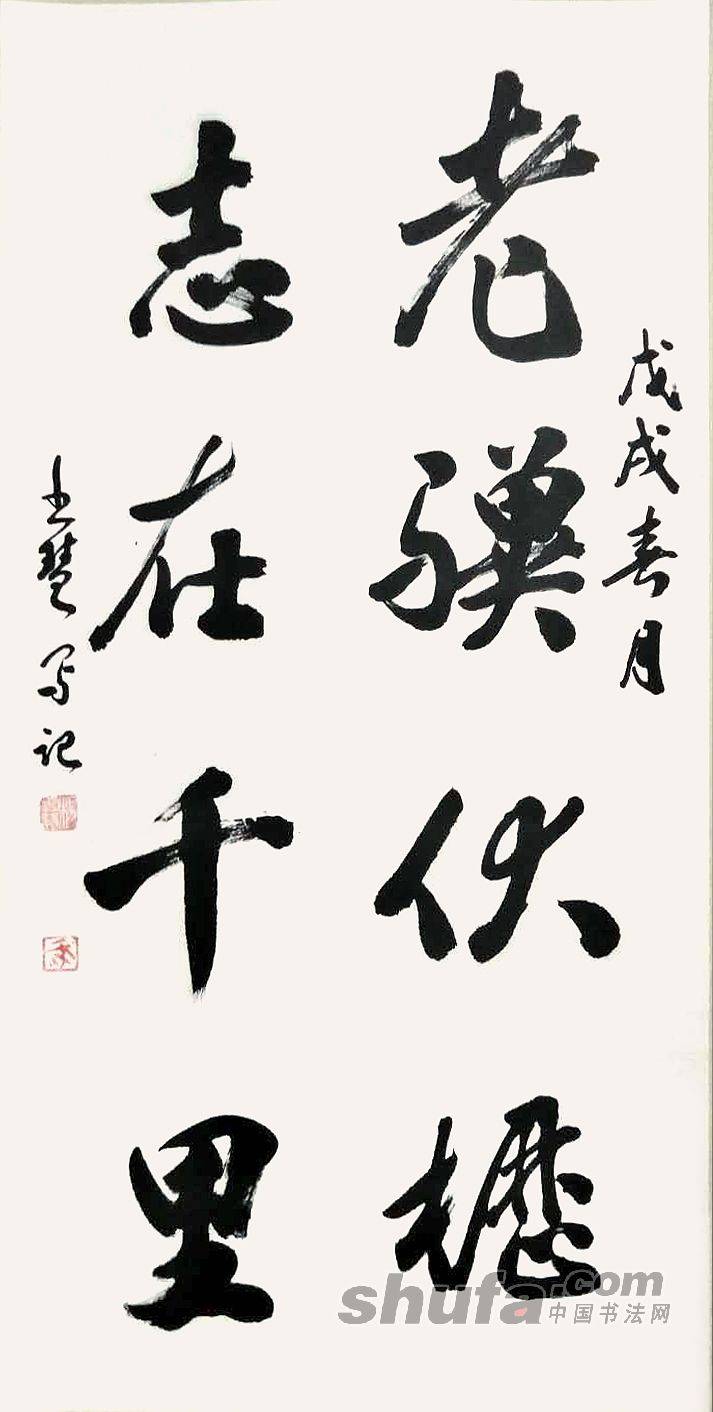 戊戌春月
老骥伏櫪
志在千里
写记
shufa.com
中国书法网